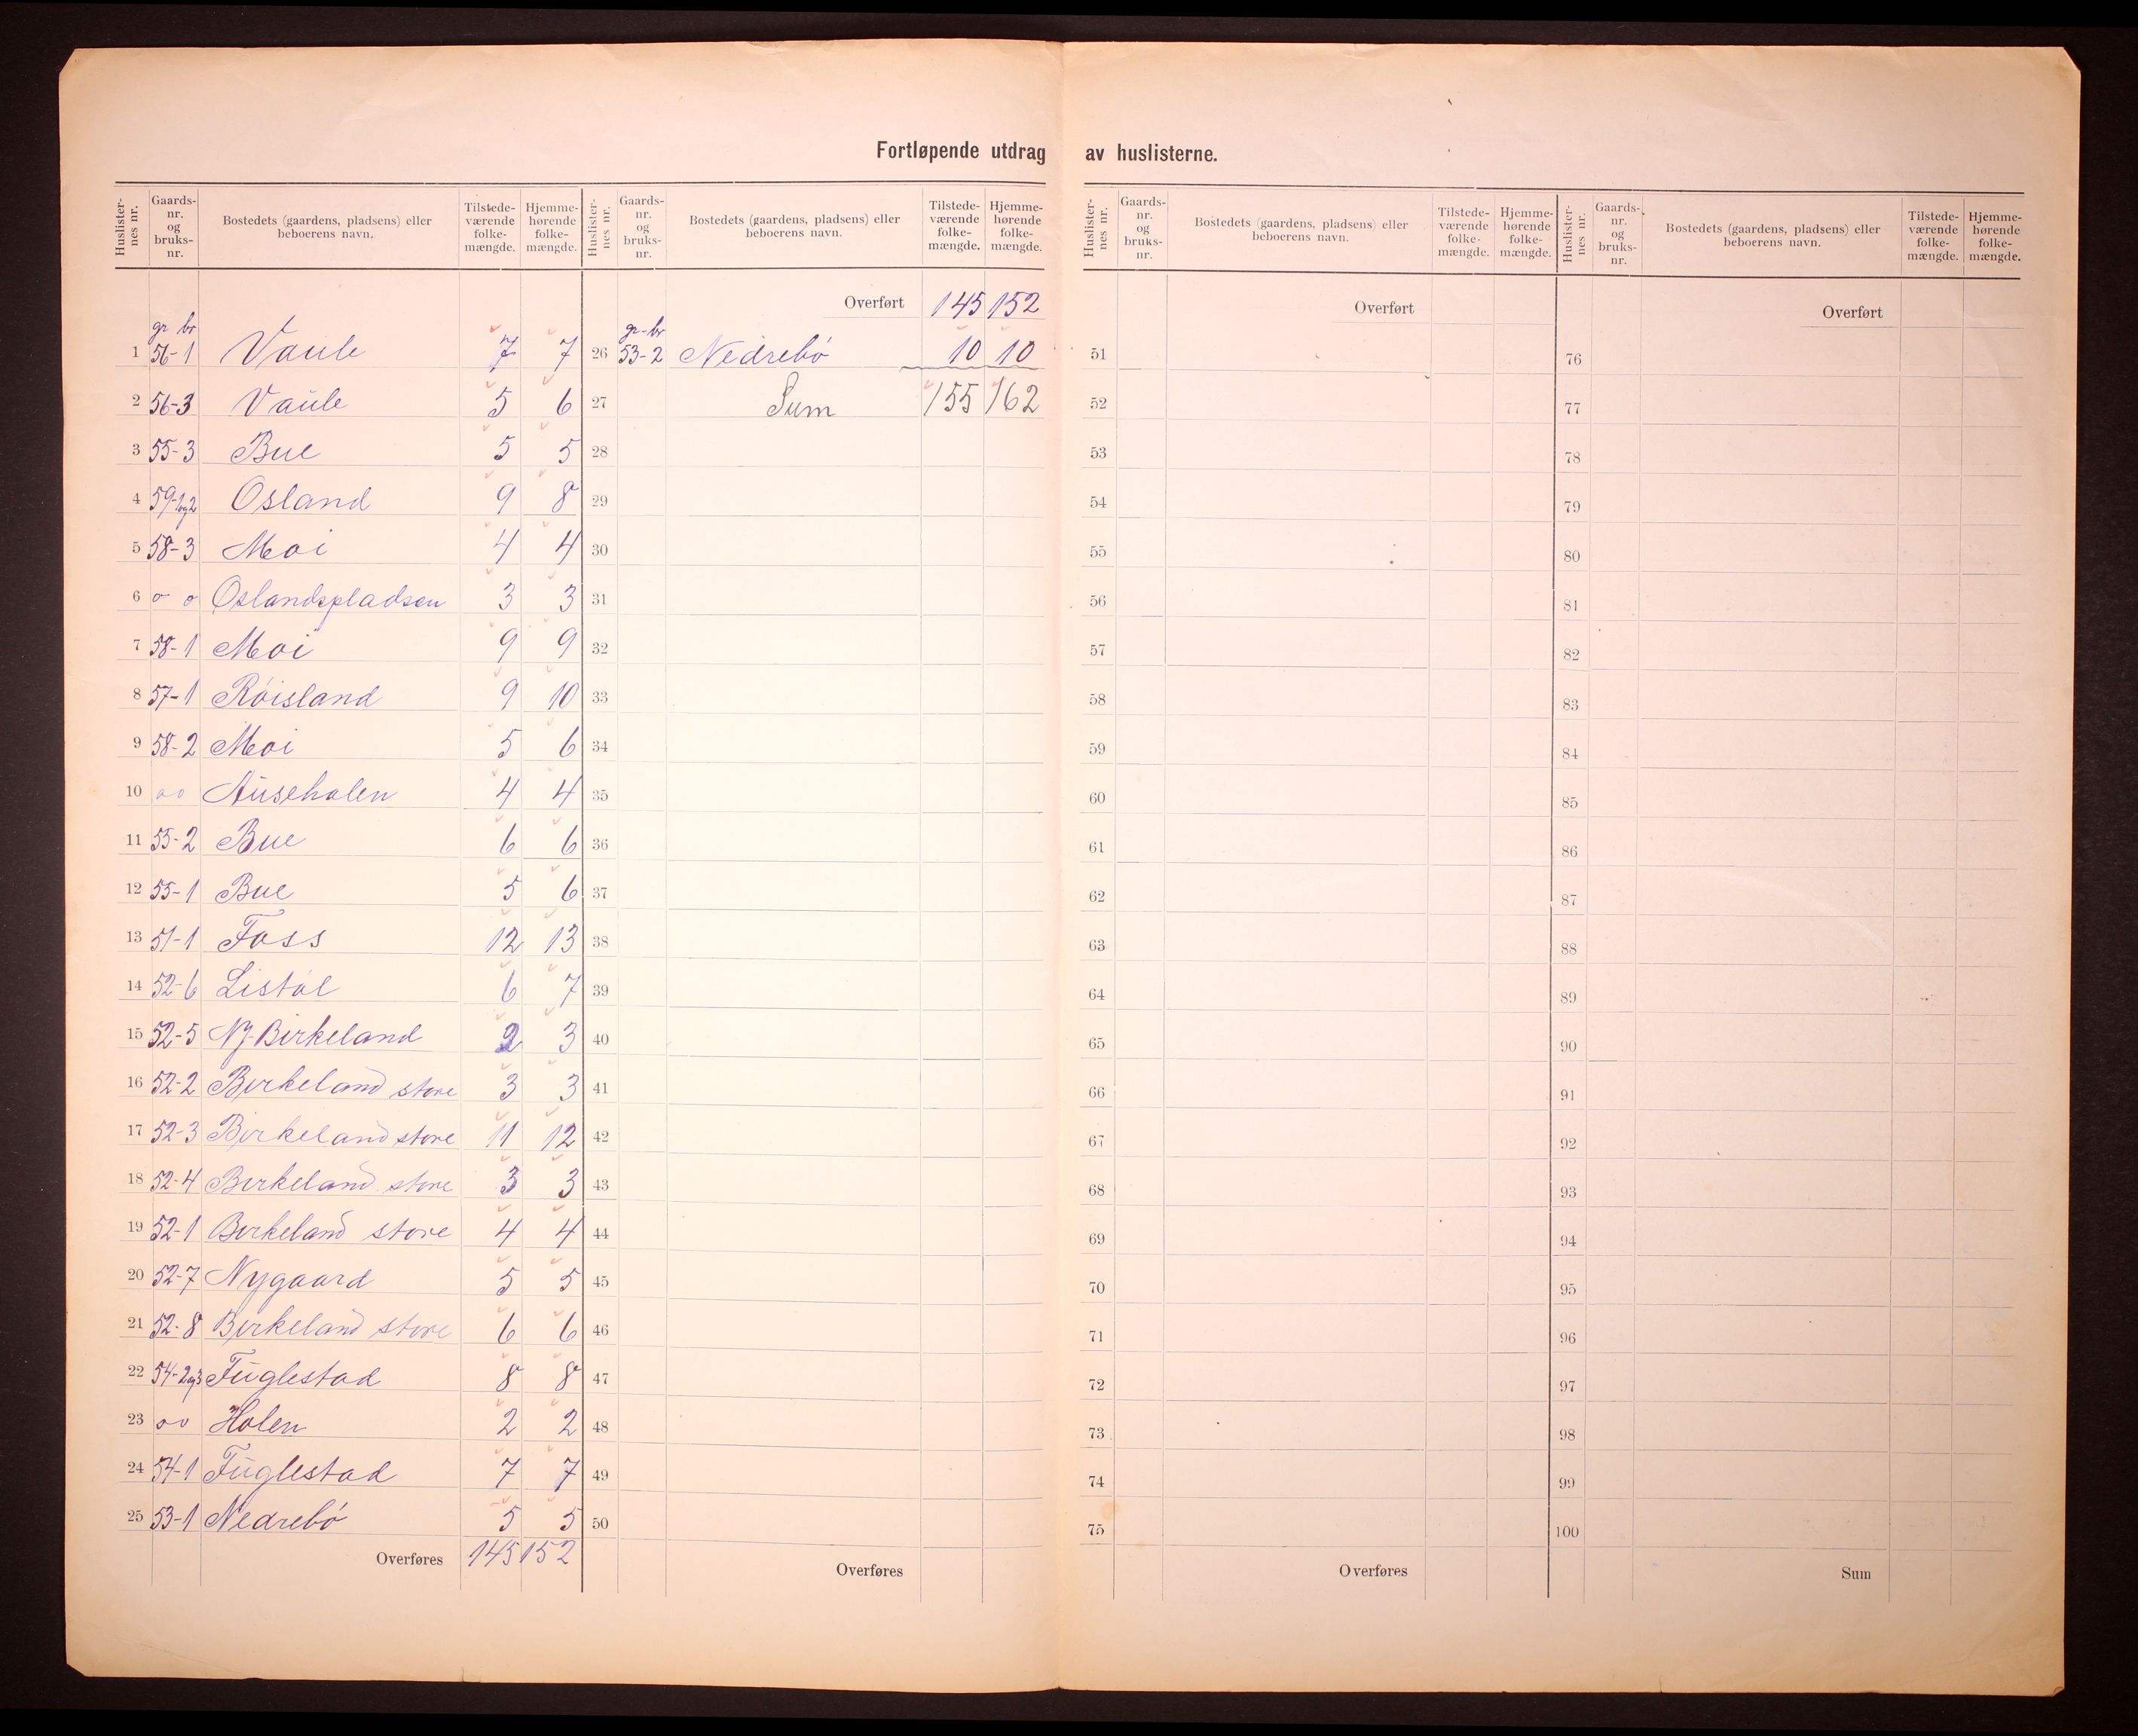 Fortløpende utdrag av huslisterne.
Huslisternes nr. Gaards-nr. og bruks-nr. Bostedets (gaardens, pladsens) eller beboerens navn. Tilstedeværende folke-mængde. Hjemme-hørende folke-mængde.
gr br
1 56-1 Vaule 7 7
2 56-3 Vaule 5 6
3 55-3 Bue 5 5
4 59-1og2 Osland 9 8
5 58-3 Moi 4 4
6 o o Oslandspladsen 3 3
7 58-1 Moi 9 9
8 57-1 Röisland 9 10
9 58-2 Moi 5 6
10 o o Ausehalen 4 4
11 55-2 Bue 6 6
12 55-1 Bue 5 6
13 51-1 Foss 12 13
14 52-6 Listöl 6 7
15 52-5 Ny-Birkeland 2 3
16 52-2 Birkeland store 3 3
17 52-3 Birkeland store 11 12
18 52-4 Birkeland store 3 3
19 52-1 Birkeland store 4 4
20 52-7 Nygaard 5 5
21 52-8 Birkeland store 6 6
22 54-2og3 Fuglestad 8 8
23 o o Holen 2 2
24 54-1 Fuglestad 7 7
25 53-1 Nedrebö 5 5
Overføres 145 152
Huslisternes nr. Gaards-nr. og bruks-nr. Bostedets (gaardens, pladsens) eller beboerens navn. Tilstede-værende folke-mængde. Hjemme-hørende folke-mængde.
Overført 145 152
gr-br
26 53-2 Nedrebö 10 10
27 Sum 155 162
28
29
30
31
32
33
34
35
36
37
38
39
40
41
42
43
44
45
46
47
48
49
50
Overføres
Huslister-nes nr. Gaards-nr. og bruks-nr. Bostedets (gaardens, pladsens) eller beboerens navn. Tilstede-værende folke-mængde. Hjemme-hørende folke-mængde.
Overført
51
52
53
54
55
56
57
58
59
60
61
62
63
64
65
66
67
68
69
70
71
72
73
74
75
Overføres
Huslister-nes nr. Gaards-nr. og bruks-nr. Bostedets (gaardens, pladsens) eller beboerens navn. Tilstede-værende folke-mængde. Hjemme-hørende folke-mængde.
Overført
76
77
78
79
80
81
82
83
84
85
86
87
88
89
90
91
92
93
94
95
96
97
98
99
100
Sum